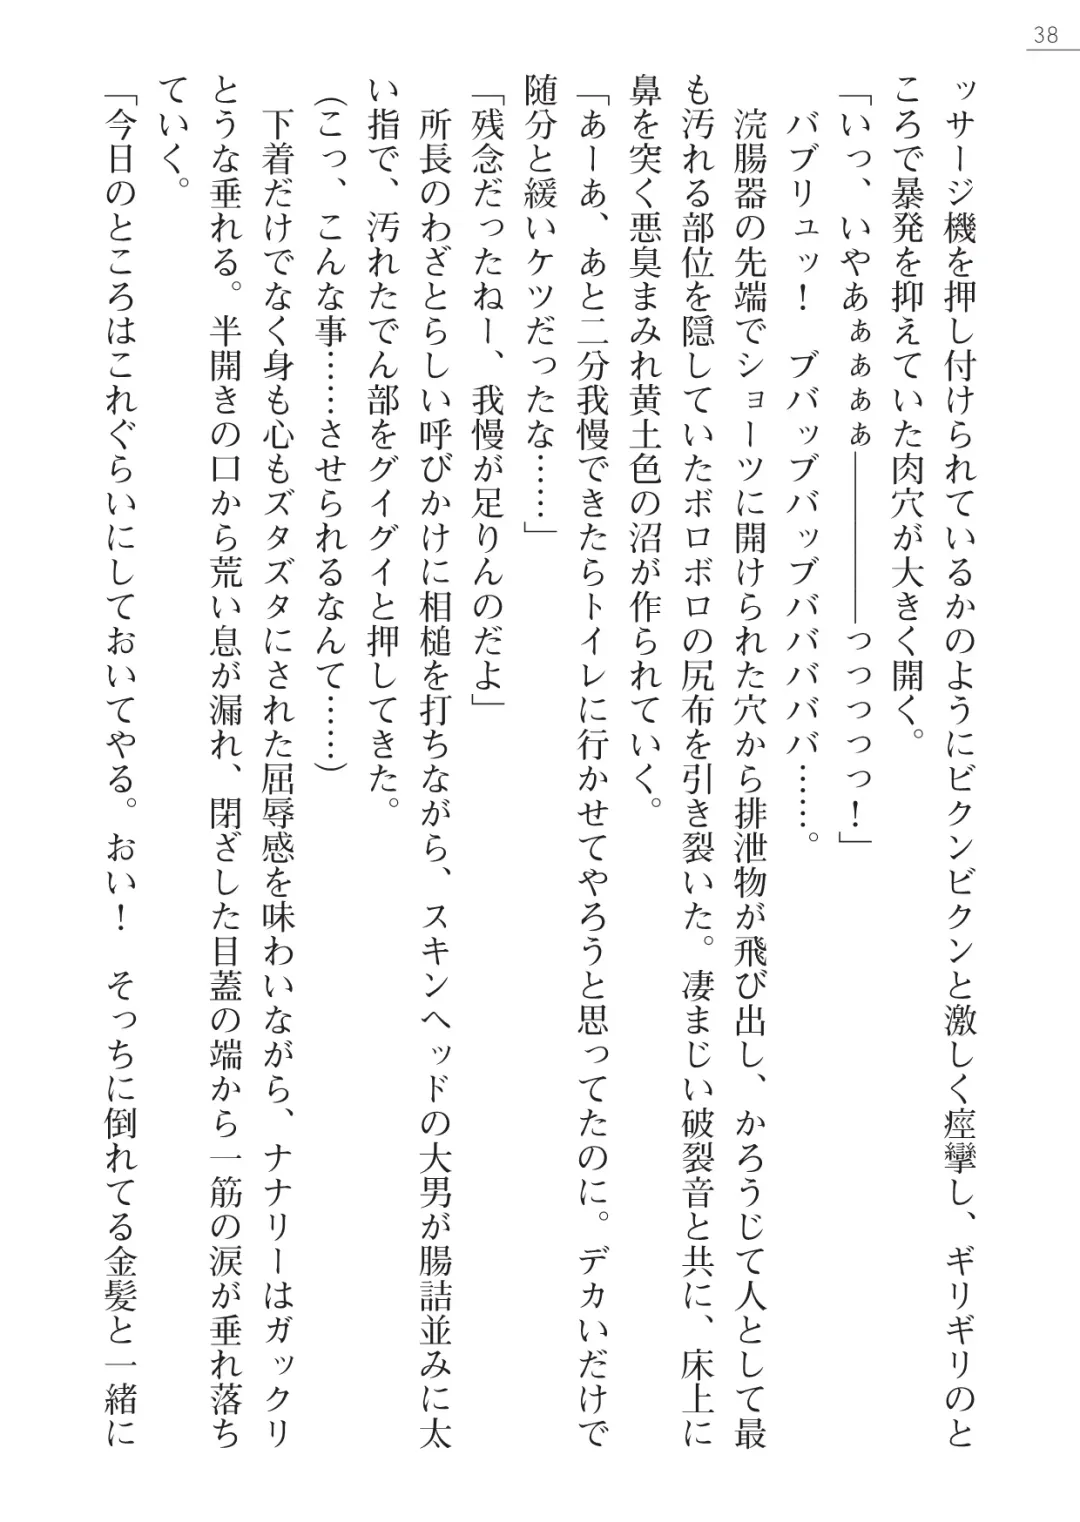 38
ッサージ機を押し付けられているかのようにビクンビクンと激しく痙攣し、ギリギリのと
ころで暴発を抑えていた肉穴が大きく開く。
「いっ、いやあぁぁぁぁ―――――っっっっっ！」
バブリュッ！　ブバッブバッブバババババ……。
浣腸器の先端でショーツに開けられた穴から排泄物が飛び出し、かろうじて人として最
も汚れる部位を隠していたボロボロの尻布を引き裂いた。凄まじい破裂音と共に、床上に
鼻を突く悪臭まみれ黄土色の沼が作られていく。
「あーあ、あと二分我慢できたらトイレに行かせてやろうと思ってたのに。デカいだけで
随分と緩いケツだったな……」
「残念だったねー、我慢が足りんのだよ」
所長のわざとらしい呼びかけに相槌を打ちながら、スキンヘッドの大男が腸詰並みに太
い指で、汚れたでん部をグイグイと押してきた。
（こっ、こんな事……させられるなんて……）
下着だけでなく身も心もズタズタにされた屈辱感を味わいながら、ナナリーはガックリ
とうな垂れる。半開きの口から荒い息が漏れ、閉ざした目蓋の端から一筋の涙が垂れ落ち
ていく。
「今日のところはこれぐらいにしておいてやる。おい！　そっちに倒れてる金髪と一緒に